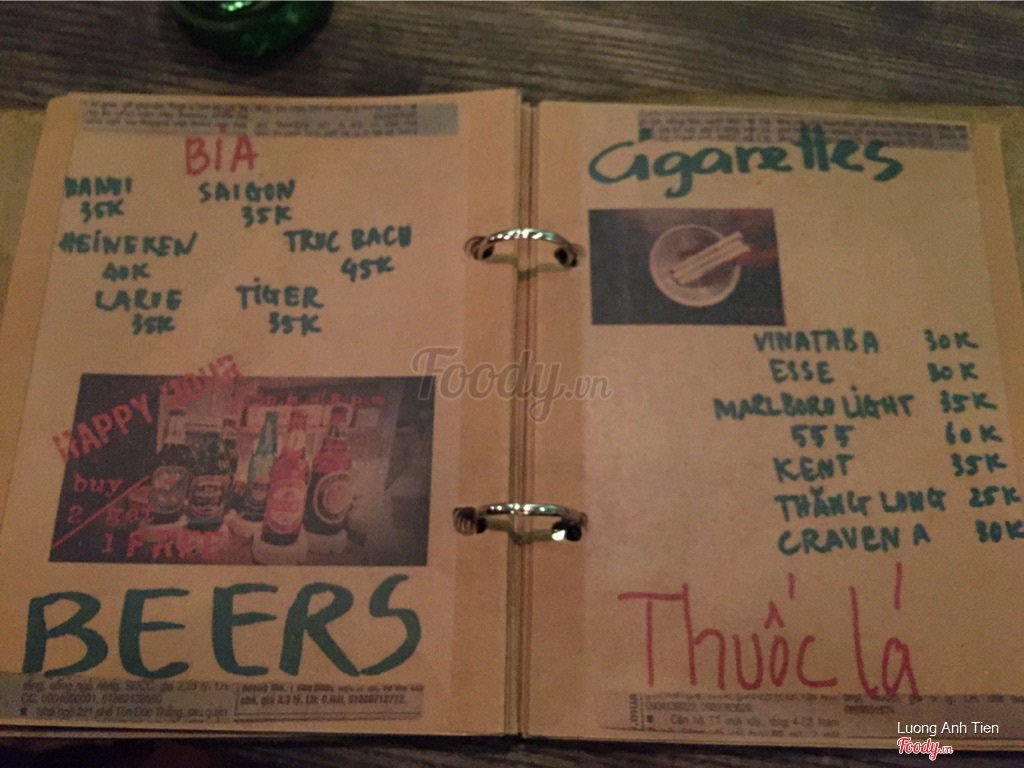 BIA
HANOI SAIGON
35K 35K
HEINEKEN TRUC BACH
40K 45K
LARUE TIGER
35K 35K
HAPPY HOUR
buy
2 get
1 FREE
BEERS
Cigarettes
VINATABA 30K
ESSE 30K
MARLBORO LIGHT 35K
555 60K
KENT 35K
THĂNG LONG 25K
CRAVEN A 30K
Thuốc lá
Foody.vn
Luong Anh Tien
Foody.vn